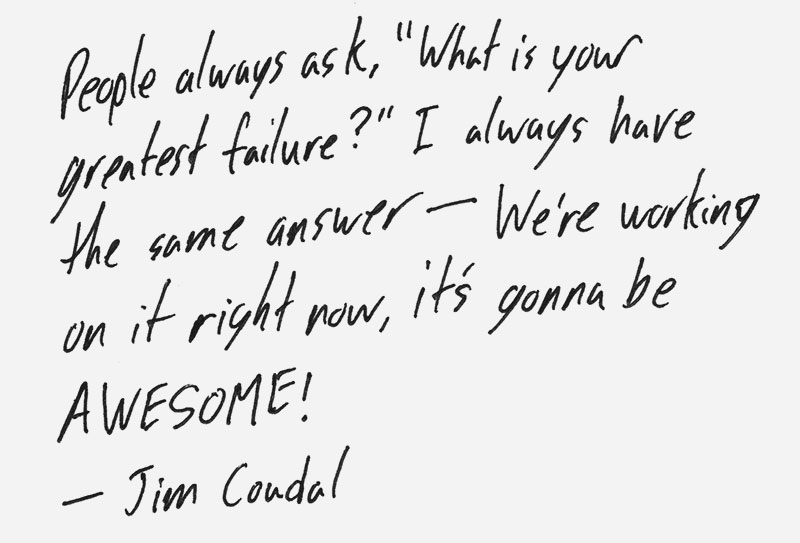 People always ask, "What is your
greatest failure?" I always have
the same answer — We're working
on it right now, it's gonna be
AWESOME!
— Jim Coudal